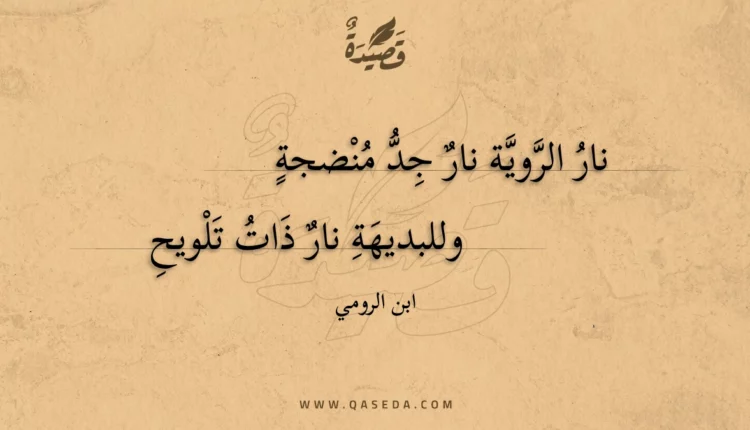 قَصِيْدَةٌ
نارُ الرَّويَّة نارٌ جِدُّ مُنْضجةٍ
وللبديهَةِ نارٌ ذَاتُ تَلْويحِ
ابن الرومي
WWW.QASEDA.COM